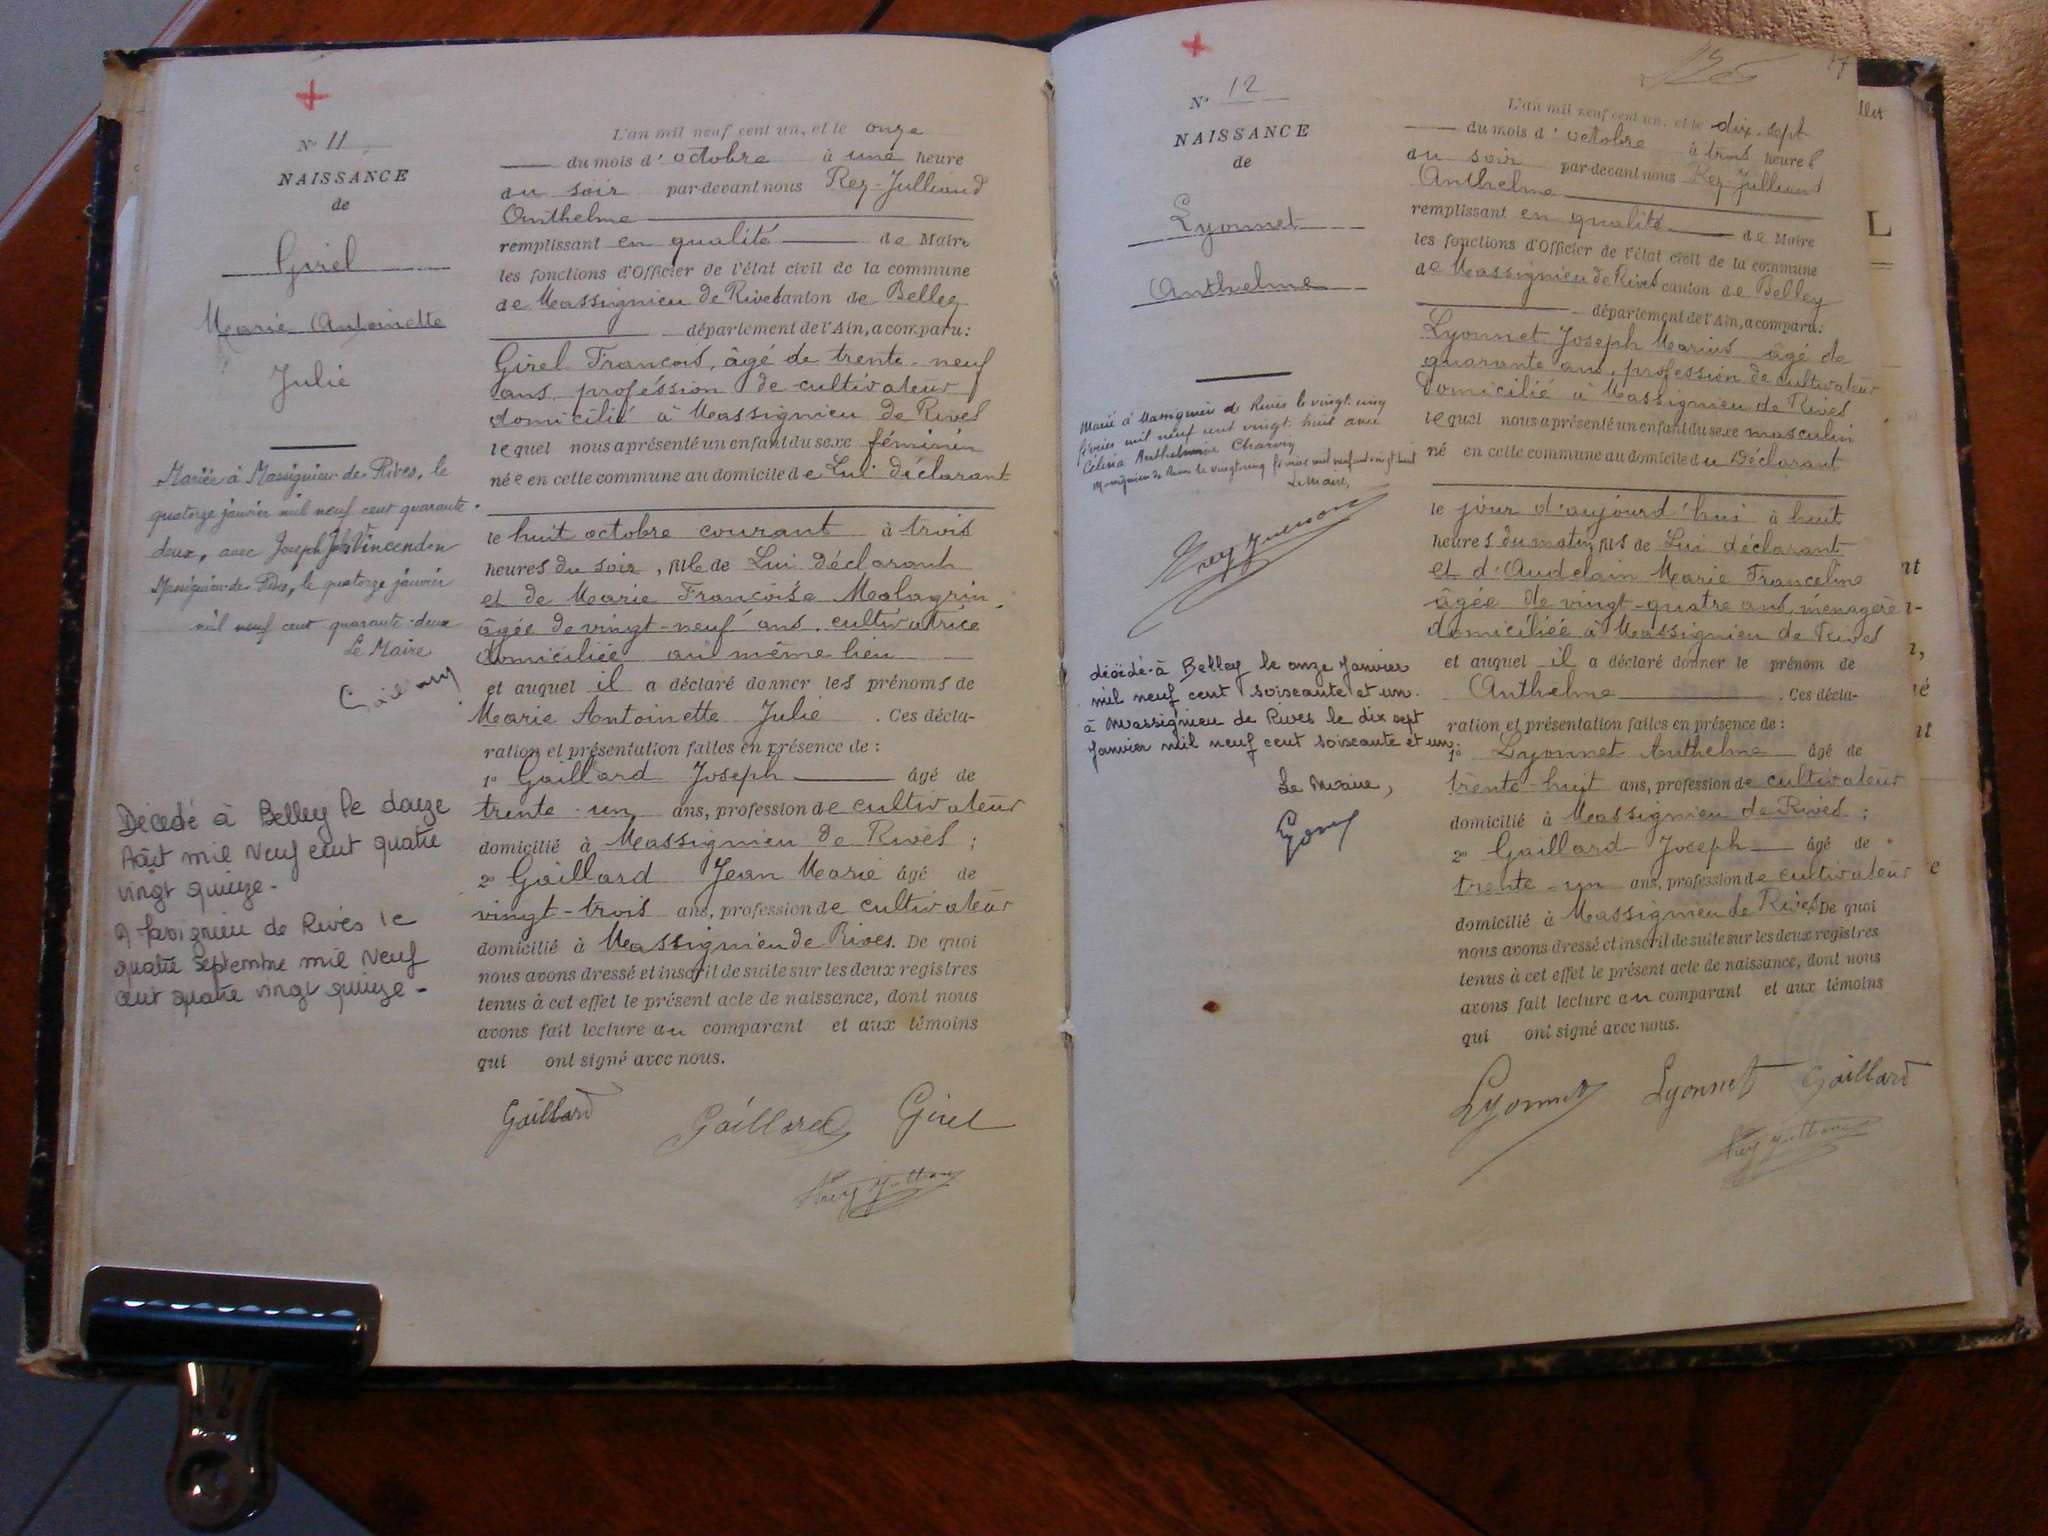 N° 11
NAISSANCE
de
Girel
Marie Antoinette
Julie
Mariée à Massignieu-de-Rives, le
quatorze janvier mil neuf cent quarante-
deux, avec Joseph Vincendon
Massignieu-de-Rives, le quatorze janvier
mil neuf cent quarante-deux
Le Maire
Décédé à Belley le douze
Août mil Neuf cent quatre
vingt quinze-
A Massignieu de Rives le
quatre Septembre mil Neuf
cent quatre vingt quinze-
L'an mil neuf cent un, et le onze
du mois d'octobre à une heure
du soir par-devant nous Rey-Julliand
Anthelme
remplissant en qualité de Maire
les fonctions d'Officier de l'état civil de la commune
de Massignieu de Rives canton de Belley
département de l'Ain, a comparu:
Girel François, âgé de trente-neuf
ans, profession de cultivateur
domicilié à Massignieu de Rives
lequel nous a présenté un enfant du sexe féminin
née en cette commune au domicile de Lui déclarant
le huit octobre courant à trois
heures du soir, fille de Lui déclarant
et de Marie Françoise Malagrin
âgée de vingt-neuf ans, cultivatrice
domiciliée au même lieu
et auquel il a déclaré donner les prénoms de
Marie Antoinette Julie. Ces décla-
ration et présentation faites en présence de:
1° Gaillard Joseph âgé de
trente-un ans, profession de cultivateur
domicilié à Massignieu de Rives;
2° Gaillard Jean Marie âgé de
vingt-trois ans, profession de cultivateur
domicilié à Massignieu de Rives. De quoi
nous avons dressé et inscrit de suite sur les deux registres
tenus à cet effet le présent acte de naissance, dont nous
avons fait lecture au comparant et aux témoins
qui ont signé avec nous.
Gaillard Gaillard Girel
Rey Julliand
17
N° 12
NAISSANCE
de
Lyonnet
Anthelme
Marié à Massignieu de Rives le vingt-cinq
février mil neuf cent vingt-huit avec
Célina Anthelmine Charvin
Massignieu de Rives le vingt-cinq février mil neuf cent vingt huit
Le Maire,
Rey Julliand
décédé à Belley le onze Janvier
mil neuf cent soixante et un.
à Massignieu de Rives le dix sept
Janvier mil neuf cent soixante et un.
Le Maire,
L'an mil neuf cent un, et le dix-sept
du mois d'octobre à trois heures
du soir par-devant nous Rey-Julliand
Anthelme
remplissant en qualité de Maire
les fonctions d'Officier de l'état civil de la commune
de Massignieu de Rives canton de Belley
département de l'Ain, a comparu:
Lyonnet Joseph Marius âgé de
quarante ans, profession de cultivateur
domicilié à Massignieu de Rives
lequel nous a présenté un enfant du sexe masculin
né en cette commune au domicile du Déclarant
le jour d'aujourd'hui à huit
heures du matin, fils de Lui déclarant
et d'Audelain Marie Franceline
âgée de vingt-quatre ans, ménagère
domiciliée à Massignieu de Rives
et auquel il a déclaré donner le prénom de
Anthelme. Ces décla-
ration et présentation faites en présence de:
1° Lyonnet Anthelme âgé de
trente-huit ans, profession de cultivateur
domicilié à Massignieu de Rives;
2° Gaillard Joseph âgé de
trente-un ans, profession de cultivateur
domicilié à Massignieu de Rives. De quoi
nous avons dressé et inscrit de suite sur les deux registres
tenus à cet effet le présent acte de naissance, dont nous
avons fait lecture au comparant et aux témoins
qui ont signé avec nous.
Lyonnet Lyonnet Gaillard
Rey Julliand